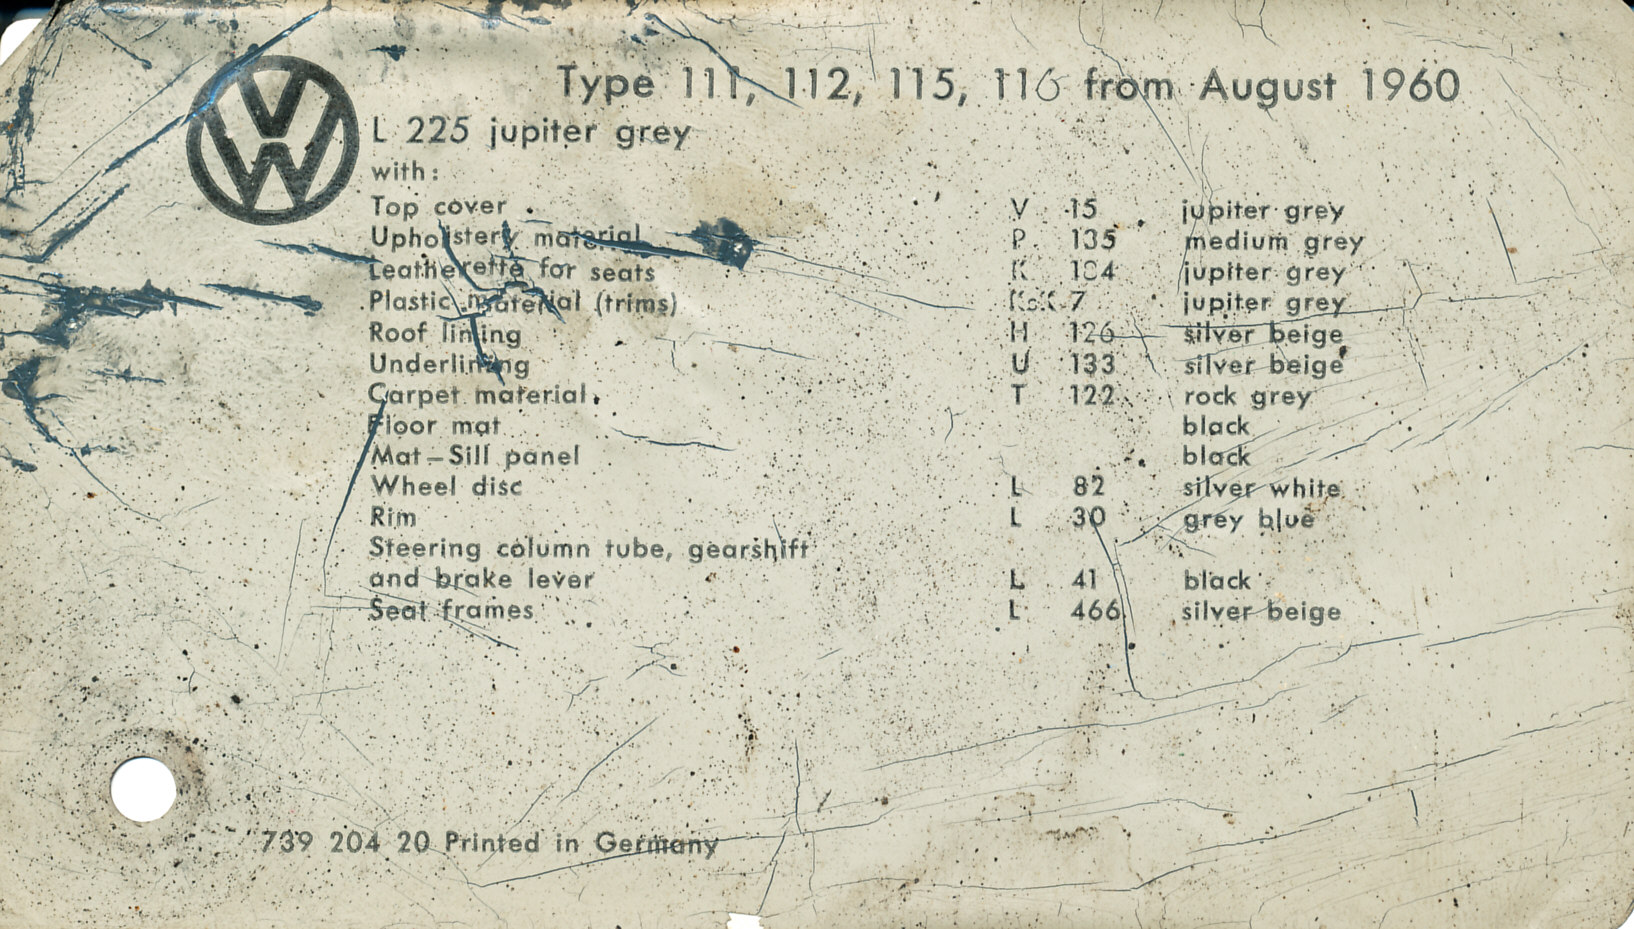 Type 111, 112, 115, 116 from August 1960
L 225 jupiter grey
with:
Top cover V 15 jupiter grey
Upholstery material P 135 medium grey
Leatherette for seats K 184 jupiter grey
Plastic material (trims) KsK 7 jupiter grey
Roof lining H 126 silver beige
Underlining U 133 silver beige
Carpet material T 122 rock grey
Floor mat black
Mat–Sill panel black
Wheel disc L 82 silver white
Rim L 30 grey blue
Steering column tube, gearshift
and brake lever L 41 black
Seat frames L 466 silver beige
739 204 20 Printed in Germany